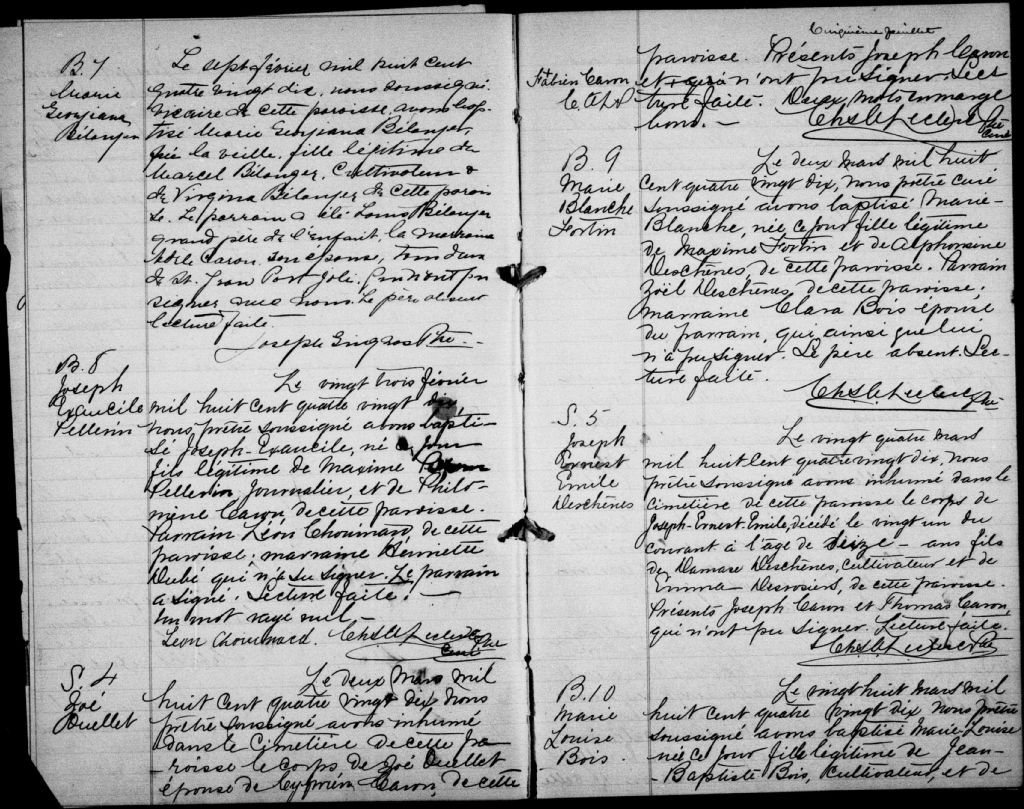 B. 7
Marie
Georgiana
Bélanger
Le sept février mil huit cent
quatre vingt dix, nous soussigné
vicaire de cette paroisse, avons bap-
tisé Marie Georgiana Bélanger,
née la veille, fille légitime de
Marcel Bélanger, Cultivateur &
de Virginia Bélanger de cette parois
se. Le parrain a été Louis Bélanger
grand père de l'enfant, la marraine
Adèle Caron, son épouse, tous deux
de St. Jean Port Joli,
signer avec nous. Le père absent
lecture faite.
Joseph Gingras Ptre
B. 8
Joseph
Exaucile
Pellerin
Le vingt trois février
mil huit cent quatre vingt dix
nous, prêtre soussigné avons bapti-
sé Joseph-Exaucile, né ce jour
fils légitime de Maxime
Pellerin, journalier, et de Philo-
mène Caron de cette paroisse.
Parrain Léon Chouinard, de cette
paroisse, marraine Henriette
Dubé qui n'a su signer. Le parrain
a signé. Lecture faite.
Un mot rayé nul
Léon Chouinard. Chs Ls Leclerc Ptre
Curé
S. 4
Zoé
Ouellet
Le deux Mars mil
huit cent quatre vingt dix nous
prêtre soussigné avons inhumé
dans le Cimetière de cette pa-
roisse le corps de Zoé Ouellet
épouse de Cyprien Caron, de cette
Cinquième feuillet
paroisse. Présents Joseph Caron
Fabien Caron
et qui n'ont pu signer. Lec
ture faite. Deux mots en marge
bons.
Chs Ls Leclerc Ptre
Curé
B. 9
Marie
Blanche
Fortin
Le deux mars mil huit
cent quatre vingt dix, nous prêtre curé
soussigné avons baptisé Marie-
Blanche, née ce jour fille légitime
de Maxime Fortin et de Alphonsine
Deschènes, de cette paroisse. Parrain
Zoël Deschènes, de cette paroisse.
Marraine Clara Bois épouse
du parrain, qui ainsi que lui
n'a pu signer. Le père absent. Lec-
ture faite.
Chs Ls Leclerc Ptre
S. 5
Joseph
Ernest
Emile
Deschènes
Le vingt quatre mars
mil huit cent quatre vingt dix, nous
prêtre soussigné avons inhumé dans le
cimetière de cette paroisse le corps de
Joseph-Ernest-Emile, décédé le vingt un du
courant à l'âge de seize ans fils
de Damase Deschènes, cultivateur et de
Emma Desrosiers, de cette paroisse.
Présents Joseph Caron et Thomas Caron,
qui n'ont pu signer. Lecture faite.
Chs Ls Leclerc Ptre
B. 10
Marie
Louise
Bois
Le vingt huit mars mil
huit cent quatre vingt dix nous prêtre
soussigné avons baptisé Marie-Louise
née ce jour fille légitime de Jean-
Baptiste Bois, cultivateur, et de